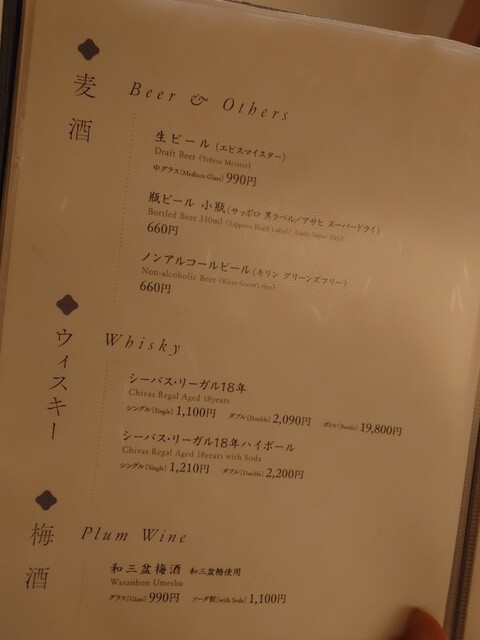 麦酒
Beer & Others
生ビール (エビスマイスター)
Draft Beer (Yebisu Meister)
中グラス[Medium Glass] 990円
瓶ビール 小瓶(サッポロ 黒ラベル/アサヒ スーパードライ)
Bottled Beer 330ml (Sapporo Black Label/ Asahi Super Dry)
660円
ノンアルコールビール(キリン グリーンズフリー)
Non-alcoholic Beer (Kirin Green's free)
660円
ウィスキー
Whisky
シーバス・リーガル18年
Chivas Regal Aged 18years
シングル[Single] 1,100円 ダブル[Double] 2,090円 ボトル[Bottle] 19,800円
シーバス・リーガル18年ハイボール
Chivas Regal Aged 18years with Soda
シングル[Single] 1,210円 ダブル[Double] 2,200円
梅酒
Plum Wine
和三盆梅酒 和三盆糖使用
Wasanbon Umeshu
グラス[Glass] 990円 ソーダ割[with Soda] 1,100円